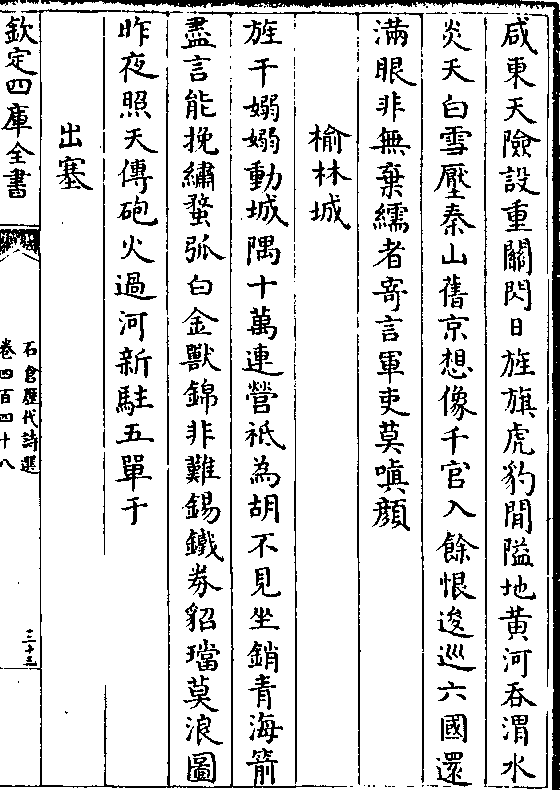 咸東天險設重關閃日旌旗虎豹間隘地黄河吞渭水
炎天白雪壓秦山舊京想像千官入餘恨逡巡六國還
滿眼非無棄繻者寄言軍吏莫嗔顔
榆林城
旌干嫋嫋動城隅十萬連營祗為胡不見坐銷青海箭
盡言能挽繡蝥弧白金獸錦非難錫鐵券貂璫莫浪圖
昨夜照天傳砲火過河新駐五單于
出塞
欽定四庫全書
石倉歷代詩選
卷四百四十八
三十三